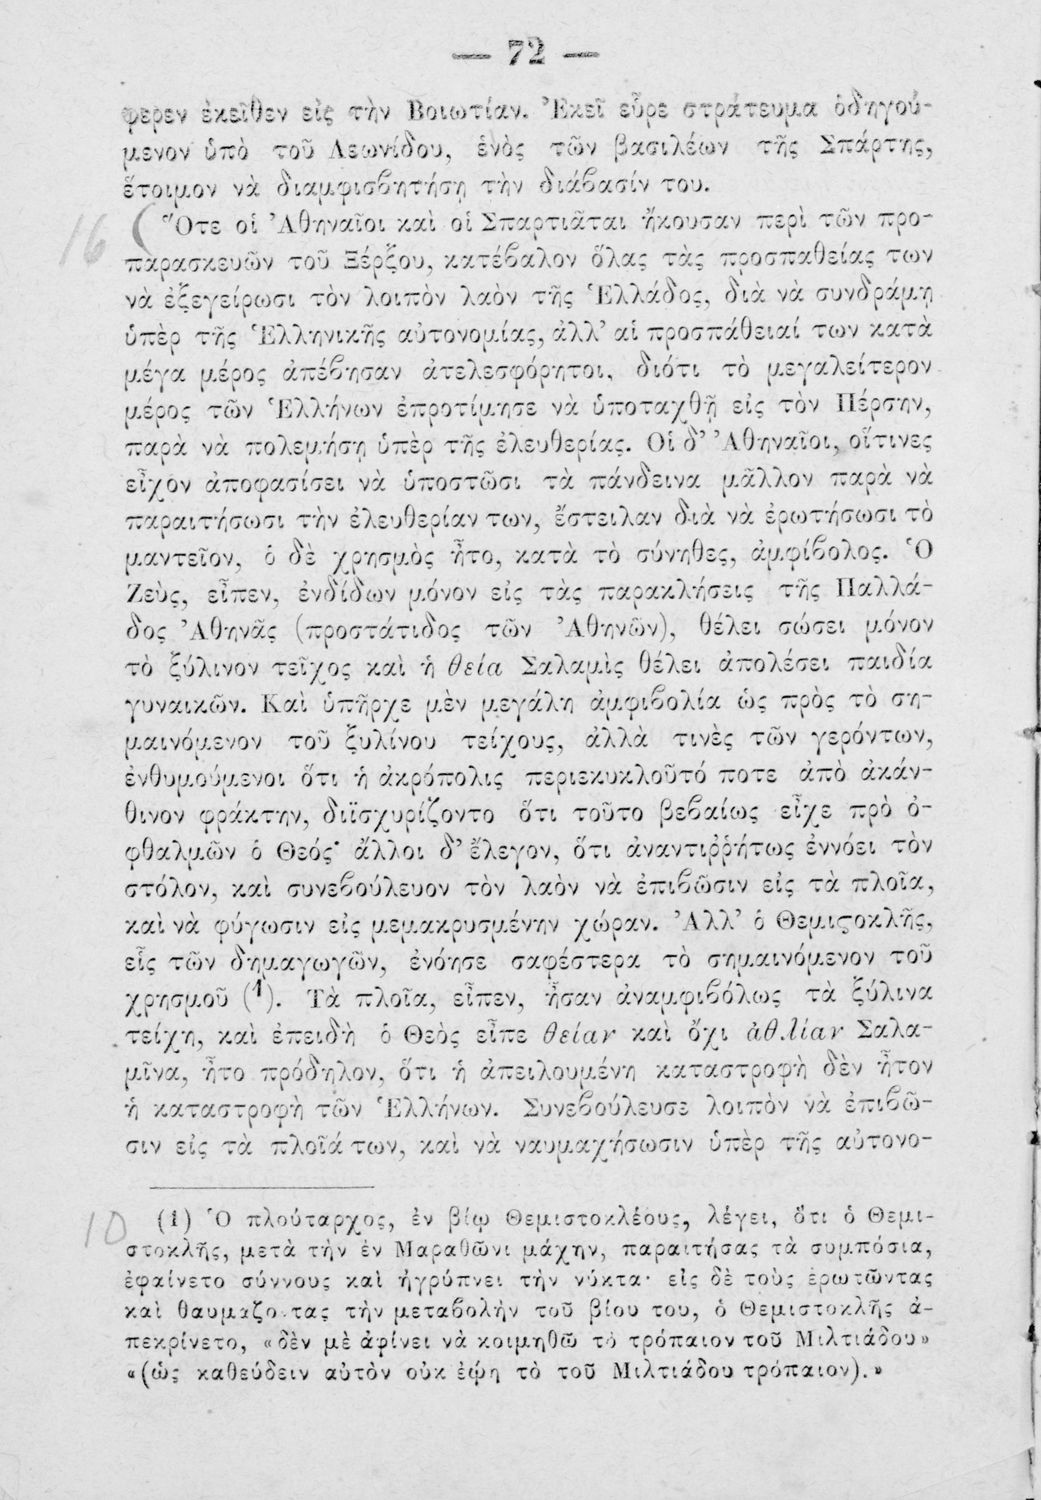 — 72 —
φερεν ἐκεῖθεν εἰς τὴν Βοιωτίαν. Ἐκεῖ εὗρε στράτευμα ὁδηγού-
μενον ὑπὸ τοῦ Λεωνίδου, ἑνὸς τῶν βασιλέων τῆς Σπάρτης,
ἕτοιμον νὰ διαμφισβητήσῃ τὴν διάβασίν του.
16 ( Ὅτε οἱ Ἀθηναῖοι καὶ οἱ Σπαρτιᾶται ἤκουσαν περὶ τῶν προ-
παρασκευῶν τοῦ Ξέρξου, κατέβαλον ὅλας τὰς προσπαθείας των
νὰ ἐξεγείρωσι τὸν λοιπὸν λαὸν τῆς Ἑλλάδος, διὰ νὰ συνδράμῃ
ὑπὲρ τῆς Ἑλληνικῆς αὐτονομίας, ἀλλ’ αἱ προσπάθειαί των κατὰ
μέγα μέρος ἀπέβησαν ἀτελεσφόρητοι, διότι τὸ μεγαλείτερον
μέρος τῶν Ἑλλήνων ἐπροτίμησε νὰ ὑποταχθῇ εἰς τὸν Πέρσην,
παρὰ νὰ πολεμήσῃ ὑπὲρ τῆς ἐλευθερίας. Οἱ δ’ Ἀθηναῖοι, οἵτινες
εἶχον ἀποφασίσει νὰ ὑποστῶσι τὰ πάνδεινα μᾶλλον παρὰ νὰ
παραιτήσωσι τὴν ἐλευθερίαν των, ἔστειλαν διὰ νὰ ἐρωτήσωσι τὸ
μαντεῖον, ὁ δὲ χρησμὸς ἦτο, κατὰ τὸ σύνηθες, ἀμφίβολος. Ὁ
Ζεὺς, εἶπεν, ἐνδίδων μόνον εἰς τὰς παρακλήσεις τῆς Παλλά-
δος Ἀθηνᾶς (προστάτιδος τῶν Ἀθηνῶν), θέλει σώσει μόνον
τὸ ξύλινον τεῖχος καὶ ἡ θεία Σαλαμὶς θέλει ἀπολέσει παιδία
γυναικῶν. Καὶ ὑπῆρχε μὲν μεγάλη ἀμφιβολία ὡς πρὸς τὸ ση-
μαινόμενον τοῦ ξυλίνου τείχους, ἀλλὰ τινὲς τῶν γερόντων,
ἐνθυμούμενοι ὅτι ἡ ἀκρόπολις περιεκυκλοῦτό ποτε ἀπὸ ἀκάν-
θινον φράκτην, διϊσχυρίζοντο ὅτι τοῦτο βεβαίως εἶχε πρὸ ὀ-
φθαλμῶν ὁ Θεός· ἄλλοι δ’ ἔλεγον, ὅτι ἀναντιῤῥήτως ἐννόει τὸν
στόλον, καὶ συνεβούλευον τὸν λαὸν νὰ ἐπιβῶσιν εἰς τὰ πλοῖα,
καὶ νὰ φύγωσιν εἰς μεμακρυσμένην χώραν. Ἀλλ’ ὁ Θεμιϛοκλῆς,
εἷς τῶν δημαγωγῶν, ἐνόησε σαφέστερα τὸ σημαινόμενον τοῦ
χρησμοῦ (1). Τὰ πλοῖα, εἶπεν, ἦσαν ἀναμφιβόλως τὰ ξύλινα
τείχη, καὶ ἐπειδὴ ὁ Θεὸς εἶπε θείαν καὶ ὄχι ἀθλίαν Σαλα-
μῖνα, ἦτο πρόδηλον, ὅτι ἡ ἀπειλουμένη καταστροφὴ δὲν ἦτον
ἡ καταστροφὴ τῶν Ἑλλήνων. Συνεβούλευσε λοιπὸν νὰ ἐπιβῶ-
σιν εἰς τὰ πλοῖά των, καὶ νὰ ναυμαχήσωσιν ὑπὲρ τῆς αὐτονο-
10 (1) Ὁ πλούταρχος, ἐν βίῳ Θεμιστοκλέους, λέγει, ὅτι ὁ Θεμι-
στοκλῆς, μετὰ τὴν ἐν Μαραθῶνι μάχην, παραιτήσας τὰ συμπόσια,
ἐφαίνετο σύννους καὶ ἠγρύπνει τὴν νύκτα· εἰς δὲ τοὺς ἐρωτῶντας
καὶ θαυμάζοντας τὴν μεταβολὴν τοῦ βίου του, ὁ Θεμιστοκλῆς ἀ-
πεκρίνετο, «δὲν μὲ ἀφίνει νὰ κοιμηθῶ τὸ τρόπαιον τοῦ Μιλτιάδου»
«(ὡς καθεύδειν αὐτὸν οὐκ ἐῴη τὸ τοῦ Μιλτιάδου τρόπαιον).»